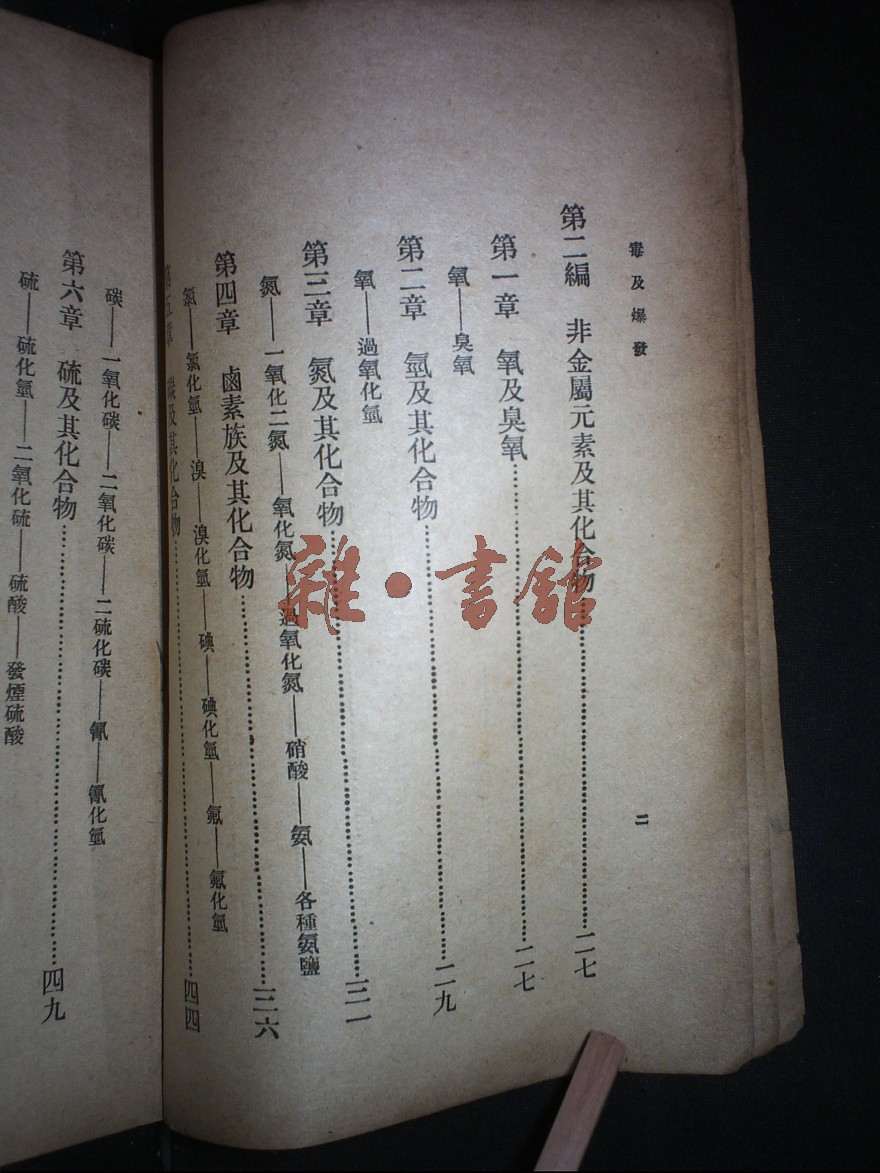 毒及爆發 二
第二編 非金屬元素及其化合物……………………二七
第一章 氧及臭氧……………………二七
氧——臭氧
第二章 氫及其化合物……………………二九
氧——過氧化氫
第三章 氮及其化合物……………………三一
氮——一氧化二氮——氧化氮——過氧化氮——硝酸——氨——各種氨鹽
第四章 鹵素族及其化合物……………………三六
氯——氯化氫——溴——溴化氫——碘——碘化氫——氟——氟化氫
第五章 碳及其化合物……………………四四
碳——一氧化碳——二氧化碳——二硫化碳——氰——氰化氫
第六章 硫及其化合物……………………四九
硫——硫化氫——二氧化硫——硫酸——發煙硫酸
雜·書館